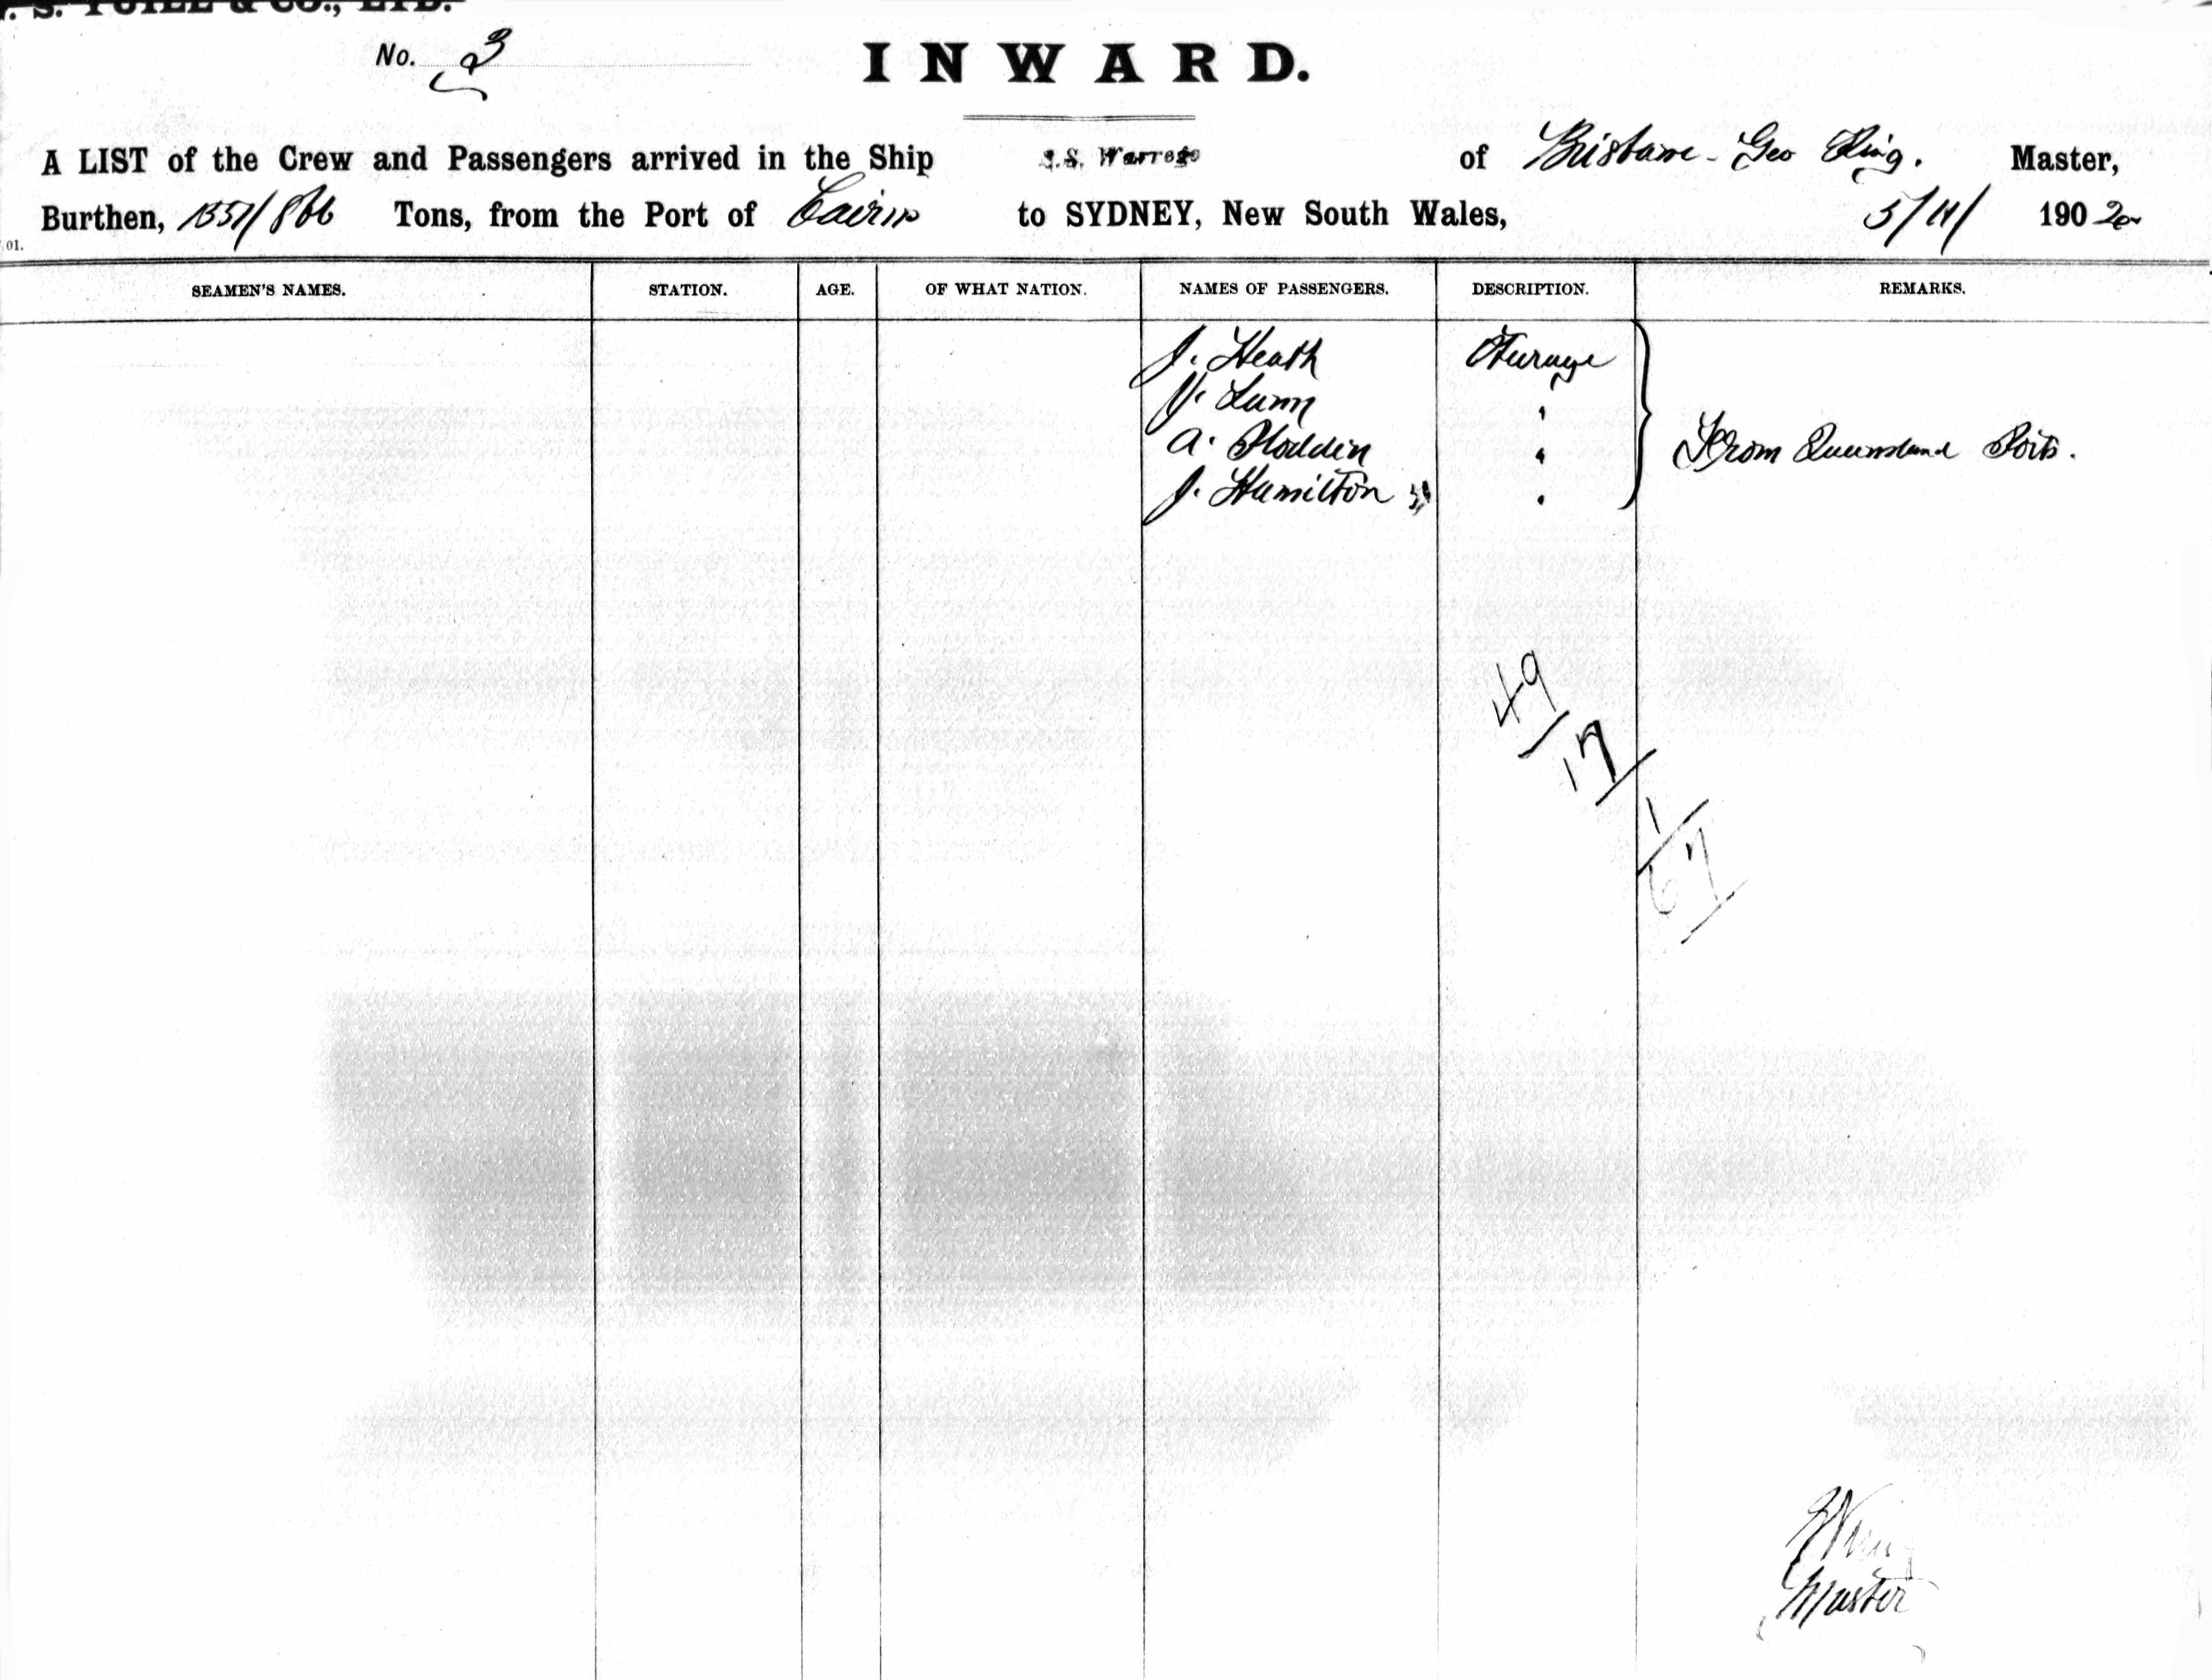 S. YUILL & CO., LTD.
No. 3
INWARD.
A LIST of the Crew and Passengers arrived in the Ship S.S. Warrego of Brisbane - Geo King. Master,
Burthen, 1551/866 Tons, from the Port of Cairns to SYDNEY, New South Wales, 5/11/ 1902
01.
SEAMEN'S NAMES. STATION. AGE. OF WHAT NATION. NAMES OF PASSENGERS. DESCRIPTION. REMARKS.
J. Heath Steerage
J. Lunn "
A. Hodden " From Queensland Ports.
J. Hamilton "
49
17
1
67
Master